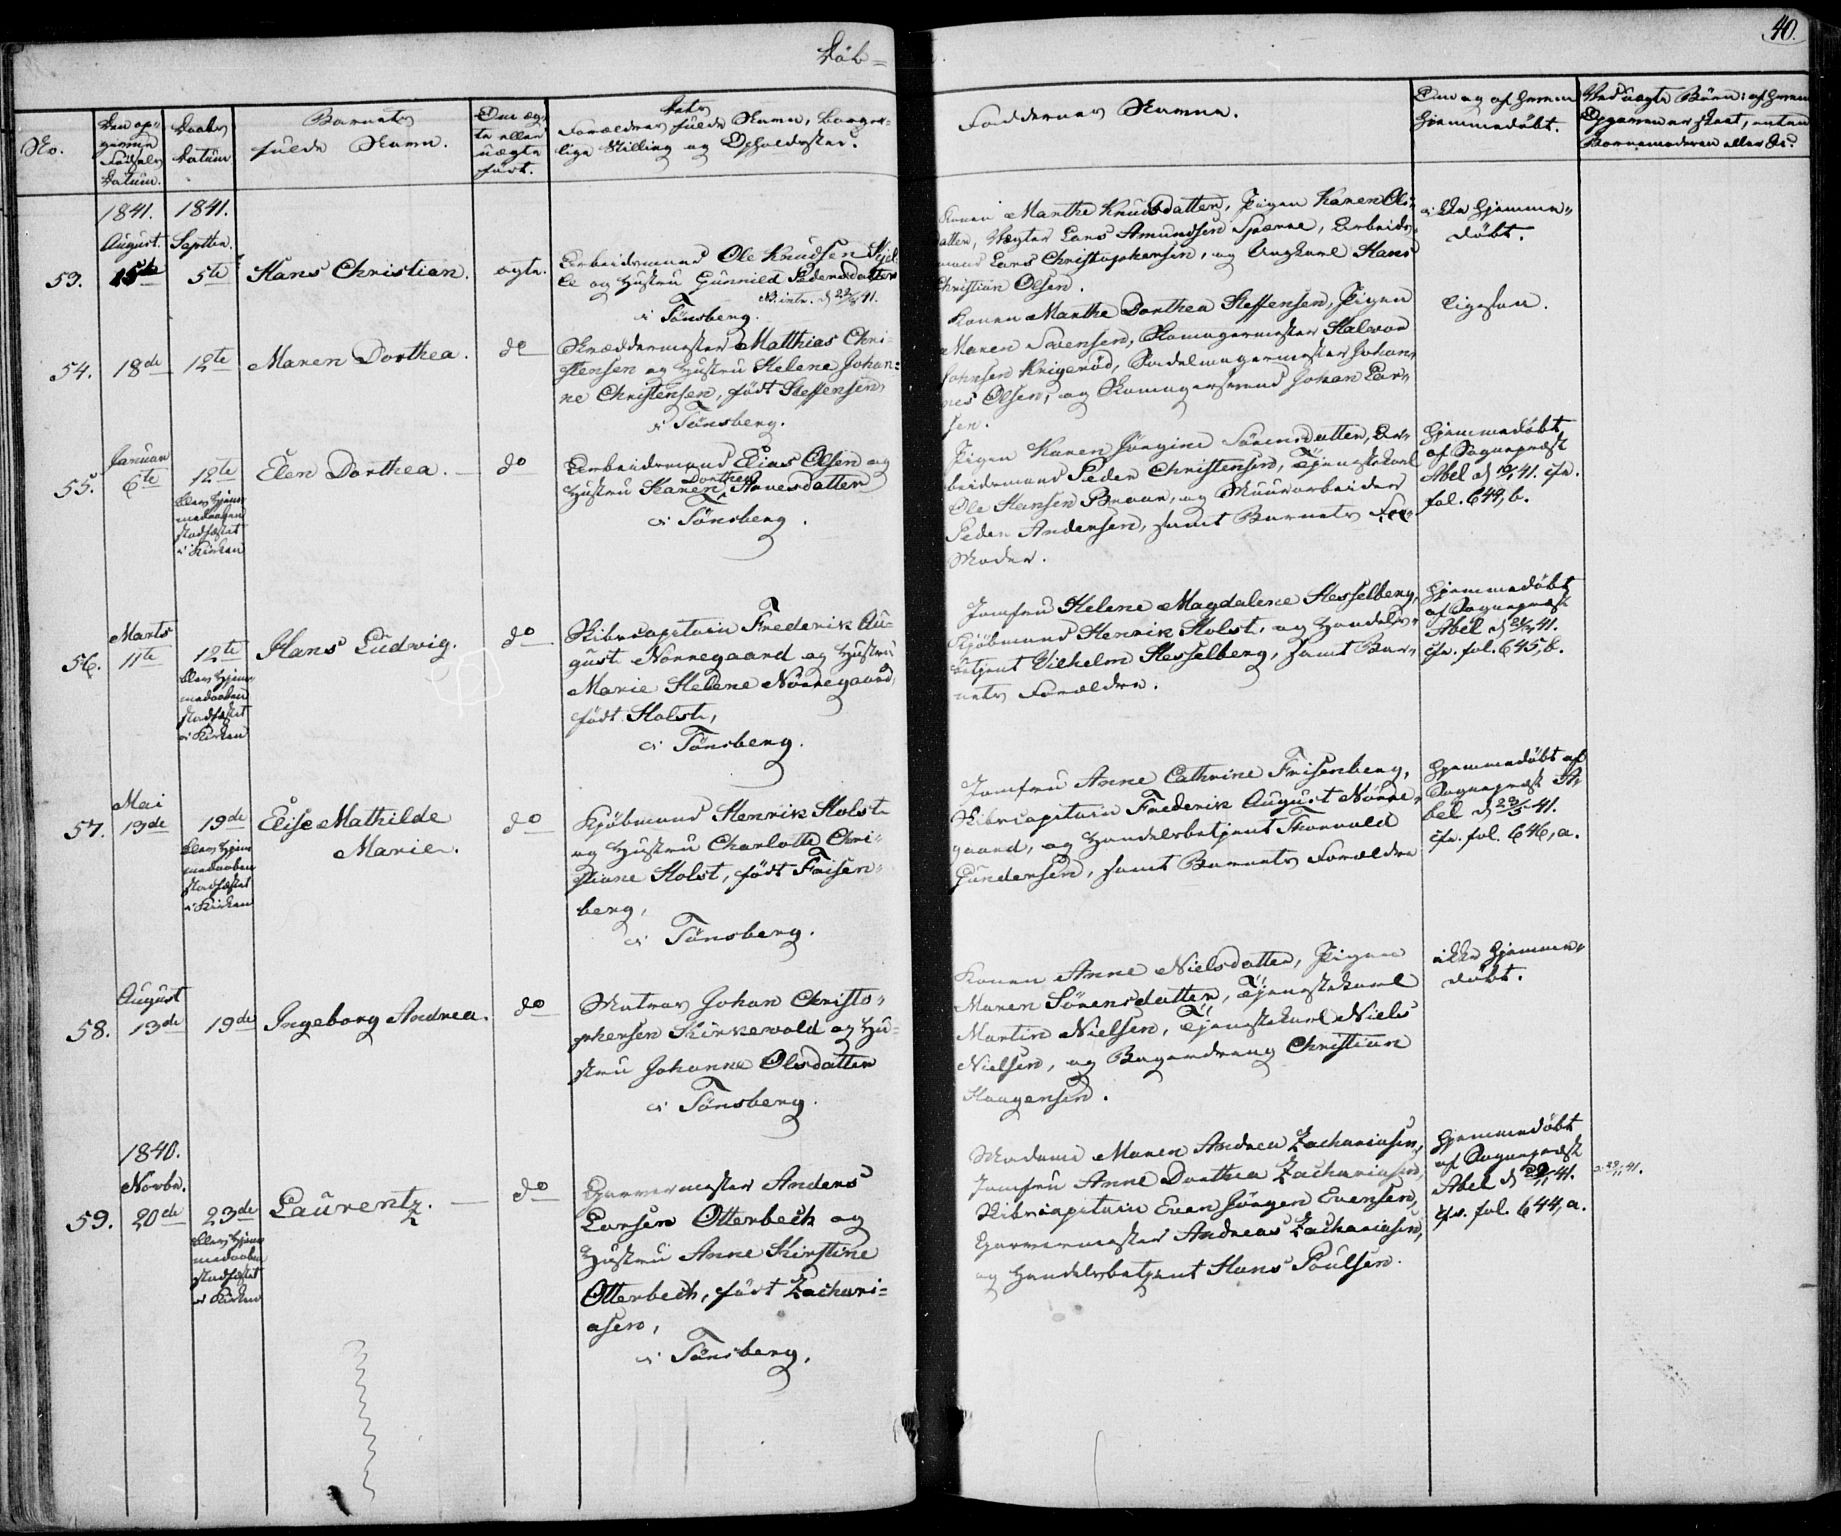 40.
Döb=
No.
Den op=
givne
Fødsels
Datum.
Daabs
Datum
Barnets
fulde Navn.
Om æg=
te eller
uægte
født.
Dets
Forældres fulde Navne, borger=
lige Stilling og Opholdssted.
Faddernes Navne.
Om og af hvem
hjemmedöbt.
Ved uægte Börn: af hvem
Opgaven er skeet, enten
Barnemoderen eller &c?
1841.
August.
1841.
Septbr.
53.
15de
5te
Hans Christian.
ægte.
Arbeidsmand Ole Knudsen
og Hustru Gunnild Pedersdatter
i Tönsberg.
Konen Marthe Knudsdatter, Pigen Karen Ols=
datter, Vægter Lars Amundsen, Arbeids=
mand Lars Christophersen, og Ungkarl Hans
Christian Olsen.
ikke hjemme=
döbt.
54.
18de
12te
Maren Dorthea.
do
Skræddermester Matthias Chri=
stensen og Hustru Helene Johan=
ne Christensen, född Steffensen,
i Tönsberg.
Konen Marthe Dorthea Steffensen, Pigen
Maren Svensen, Skomagermester Halvor
Johnsen Krigeröd, Sadelmagermester Johan=
nes Olsen, og Skomagersvend Johan Lar=
sen.
Ligesaa.
55.
Januar
6te
12te
blev hjem=
medaaben
stadfæstet
i Kirken
Elen Dorthea.
do
Arbeidsmand Elias Olsen og
Hustru Karen Dorthea Hansdatter
i Tönsberg.
Pigen Karen Jörgine Sörensdatter, Ar=
beidsmand Peder Christensen, Tjenestekarl
Ole Hansen Braar, og Muurarbeider
Peder Andersen, samt Barnets
Moder.
Hjemmedöbt
af Sognepræst
Abel d 10/1 41. cfr.
fol. 649, b.
56.
Marts
11te
12te
blev hjem=
medaaben
stadfæstet
i Kirken
Hans Ludvig.
do
Skibscapitain Frederik Au=
gust Nörregaard og Hustru
Marie Helene Nörregaard,
född Holst,
i Tönsberg.
Jomfru Helene Magdalene Hesselberg,
Kjöbmand Henrik Holst, og Handels=
betjent Vilhelm Hesselberg, samt Bar=
nets Forældre.
Hjemmedöbt
af Sognepræst
Abel d 41.
cfr. fol. 645, b.
57.
Mai
13de
19de
blev hjem=
medaaben
stadfæstet
i Kirken
Elise Mathilde
Marie.
do
Kjöbmand Henrik Holst
og Hustru Charlotte Chri=
stiane Holst, född Frisen=
berg,
i Tönsberg.
Jomfru Anne Cathrine Frisenberg,
Skibscapitain Frederik August Nörre=
gaard, og Handelsbetjent Thorvald
Gundersen, samt Barnets Forældre
Hjemmedöbt af
Sognepræst A=
bel d 23/5 41.
cfr. fol. 646, a.
58.
August
13de
19de
Ingeborg Andrea.
do
Matros Johan Christo=
phersen Kirkevold og Hu=
stru Johanne Olsdatter
i Tönsberg.
Konen Anne Nielsdatter, Pigen
Maren Sörensdatter, Tjenestekarl
Martin Nielsen, Tjenestekarl Niels
Nielsen, og Bagerdreng Christian
Haagensen.
ikke hjemme=
döbt.
1840.
Novbr.
59.
20de
23de
blev hjem=
medaaben
stadfæstet
i Kirken
Laurentz.
do
Garvermester Anders
Larsen Otterbech og
Hustru Anne Kirstine
Otterbech, född Zachari=
asen,
i Tönsberg.
Madame Maren Andrea Zachariasen,
Jomfru Anne Dorthea Zachariasen,
Skibscapitain Even Jörgen Evensen,
Garvermester Andreas Zachariasen,
og Handelsbetjent Hans Poulsen.
Hjemmedöbt
af Sognepræst
Abel d 41.
cfr. fol. 644, a.